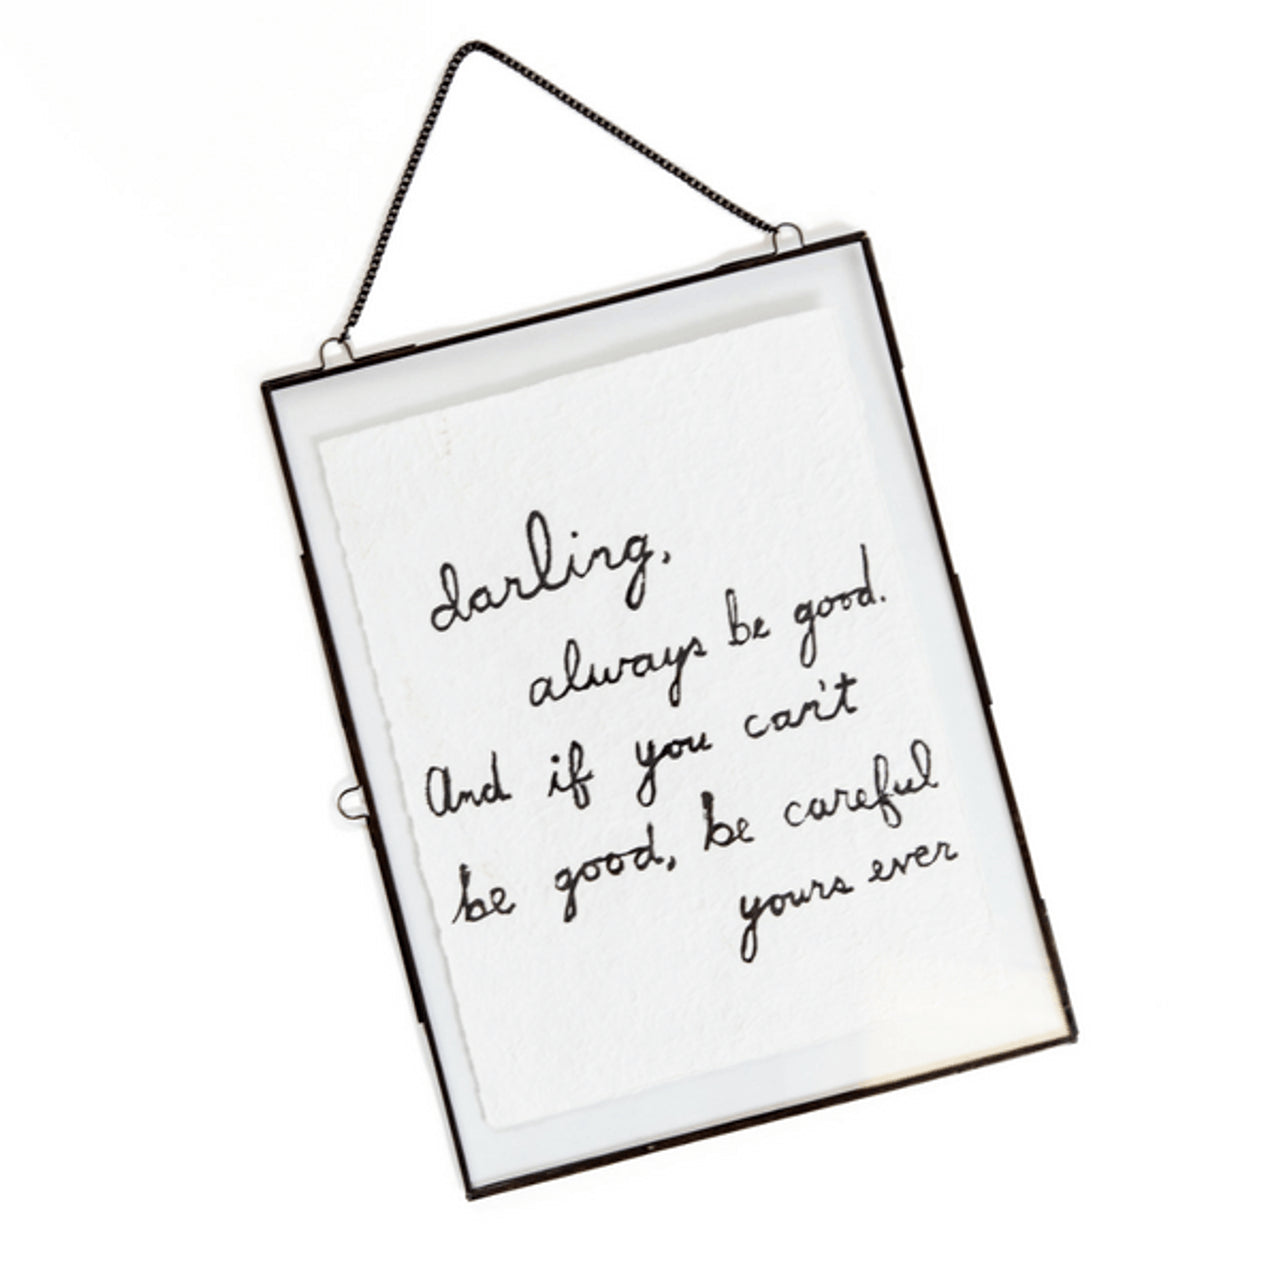 darling,
always be good.
And if you can't
be good, be careful
yours ever